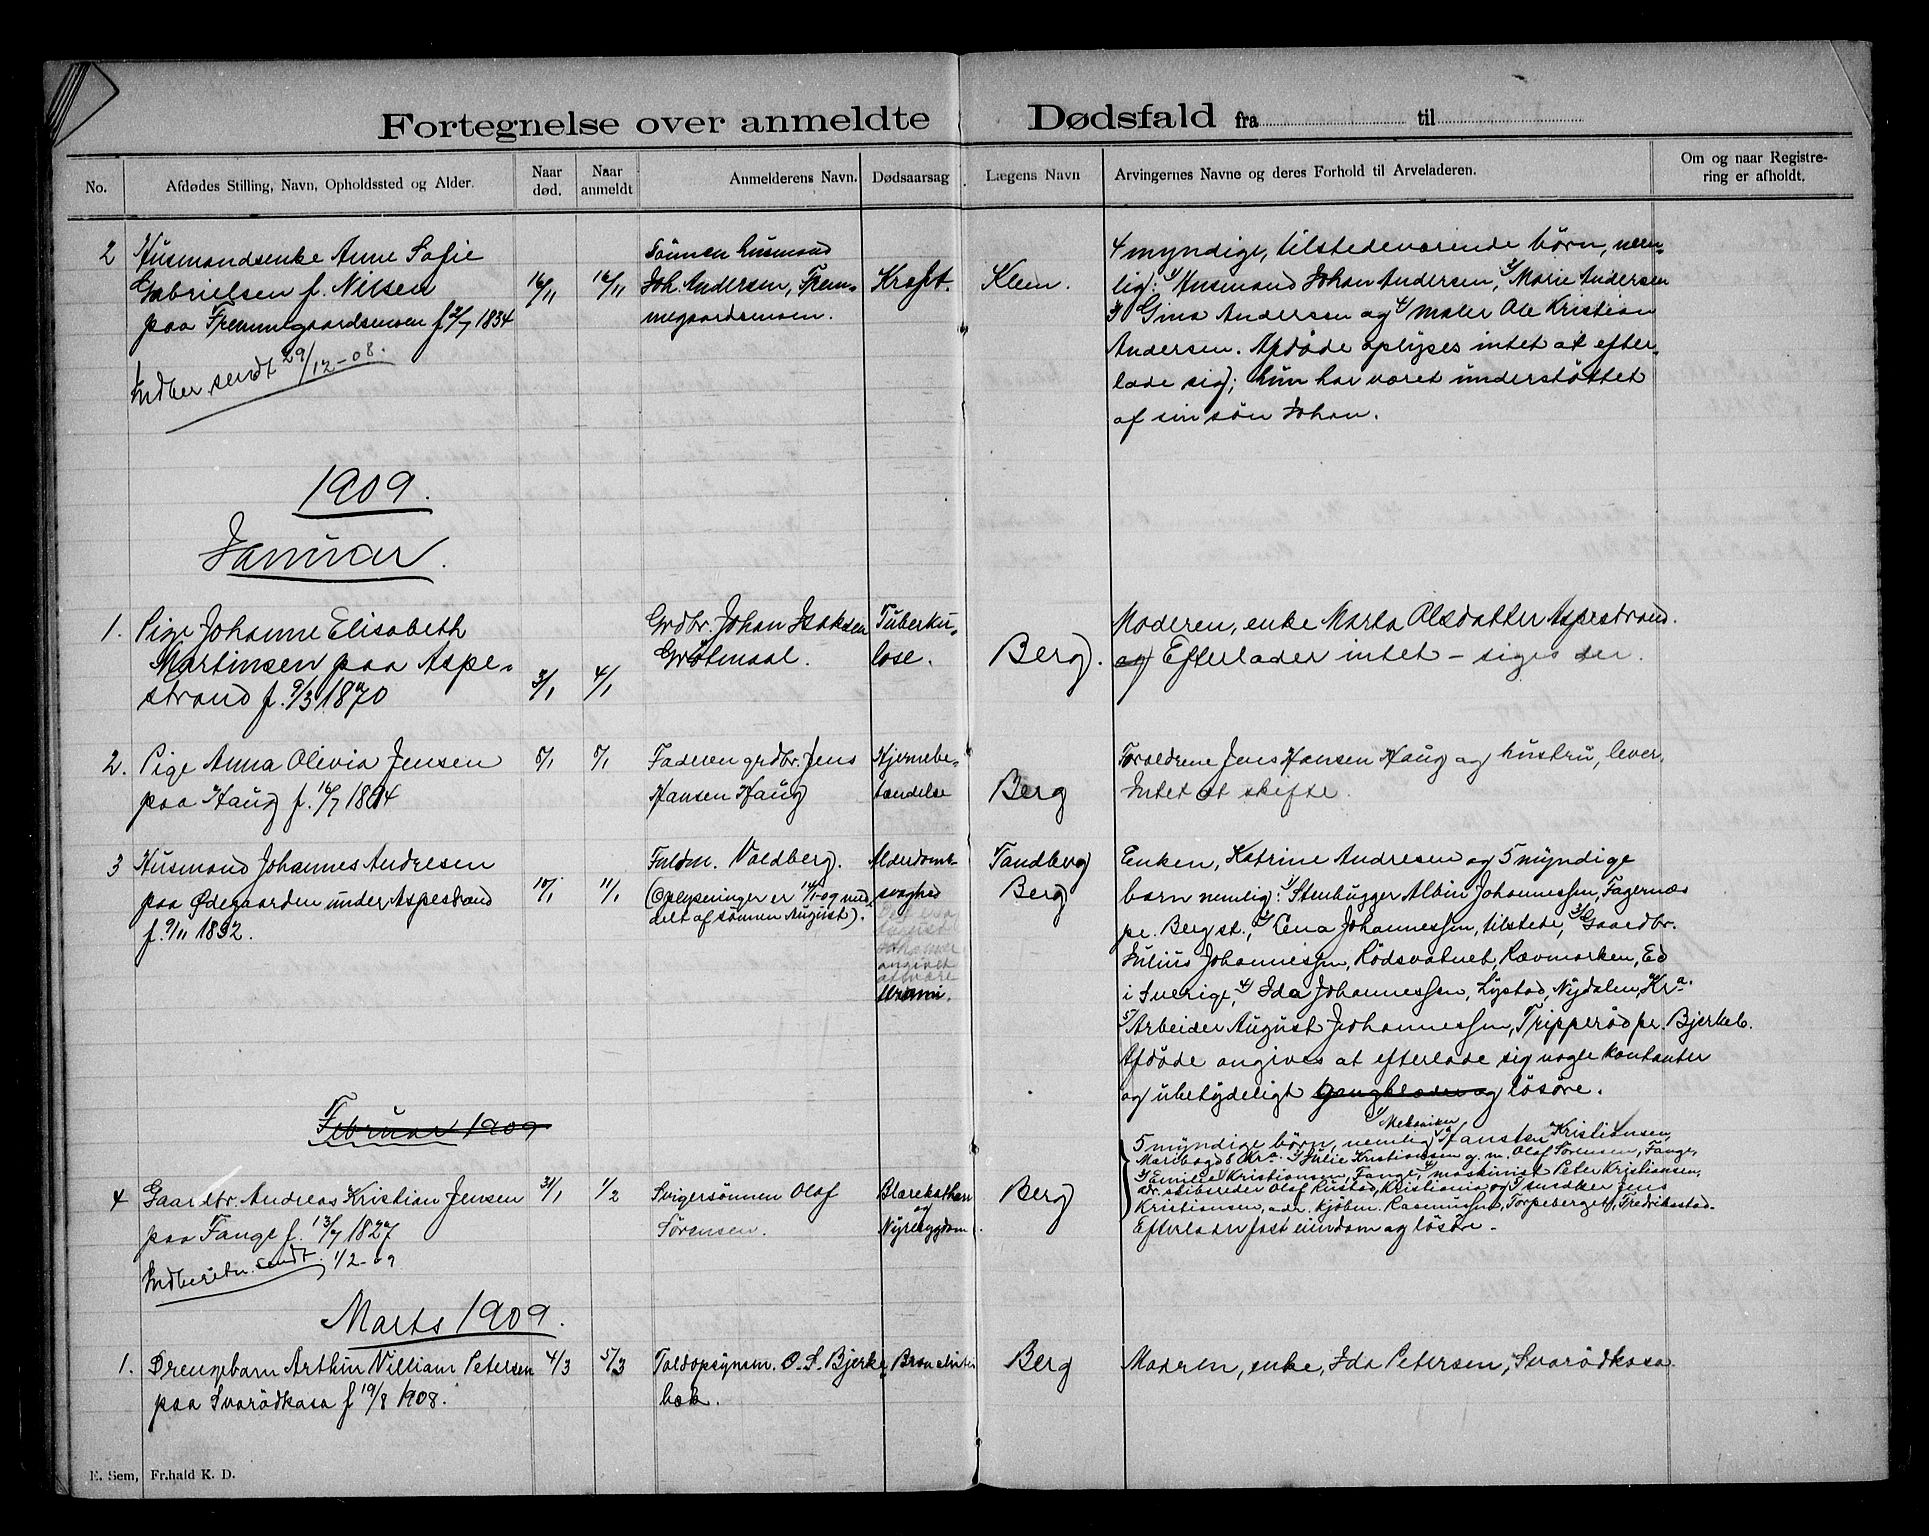 Fortegnelse over anmeldte Dødsfald fra til
No.
Afdødes Stilling, Navn, Opholdssted og Alder.
Naar
død.
Naar
anmeldt
Anmelderens Navn.
Dødsaarsag
Lægens Navn
Arvingernes Navne og deres Forhold til Arveladeren.
Om og naar Registre-
ring er afholdt.
2
Husmandsenke Anne Sofie
Gabrielsen f. Nilsen
paa Fremmegaardsmoen f. 2/7 1834
Indber. sendt 29/12-08.
16/11
16/11
Sönnen husmand
Joh. Andersen, Frem-
megaardsmoen.
Kræft.
Klem.
4 myndige, tilstedeværende börn, nem-
lig: 1/ Husmand Johan Andersen, 2/ Marie Andersen
3/ Gina Andersen og 4/ maler Ole Kristian
Andersen. Afdöde oplyses intet at efter-
lade sig; hun har været understöttet
af sin sön Johan.
1909.
Januar.
1.
Pige Johanne Elisabeth
Martinsen paa Aspe-
strand f. 9/3 1870
3/1
4/1
Grdbr. Johan Isaksen
Grötmaal.
Tuberku-
lose.
Berg.
Moderen, enke Marta Olsdatter Aspestrand.
og Efterlader intet - siges der.
2.
Pige Anna Olivia Jensen
paa Haug f. 16/7 1894
5/1
5/1
Faderen grdbr. Jens
Hansen Haug
Hjernebe-
tændelse
Berg
Forældrene Jens Hansen Haug og hustru, lever.
Intet at skifte.
3
Husmand Johannes Andresen
paa Ødegaarden under Aspestrand
f. 9/11 1832.
10/1
11/1
Fuldm. Voldberg.
(Oplysninger er 14/1-09 med-
delt af sönnen August).
Alderdoms-
svaghed
angivet
at være
Urami.
Tandberg
Berg
Enken, Katrine Andresen og 5 myndige
barn nemlig: 1/ Stenhugger Albin Johannessen, Fagernæs
pr. Berg st., 2/ Lena Johannessen, tilstede, 3/ Gaardbr.
Julius Johannessen, Rödsvatnet, Rævmarken, Ed
i Sverige, 4/ Ida Johannessen, Lystad, Nydalen, Kr.a.
5/ Arbeider August Johannessen, Tripperöd pr. Bjerkeb.
Afdöde angives at efterlade sig nogle kontanter
og ubetydeligt gangklæder og lösöre.
Februar 1909
4
Gaardbr. Andreas Kristian Jensen
paa Fange f. 13/7 1827
Indberetn. sendt 1/2-09
31/1
1/2
Svigersönnen Olaf
Sörensen.
Blærekathar
og
Nyresygdom.
Berg
1/ Mekaniker
5 myndige börn, nemlig Hansten Kristiansen,
Maribogd 8 Kra. 2/ Julie Kristiansen g. m. Olaf Sörensen, Fange,
3/ Emilie Kristiansen, Fange, 4/ maskinist Peter Kristiansen,
adr. skibsreder Olaf Rustad, Kristiania og 5 smidker Jens
Kristiansen, adr. kjöbm. Rasmussen, Torpeberget, Fredrikstad.
Efterlader fast eiendom og lösöre.
Marts 1909.
1.
Drengebarn Arthur Villiam Petersen
paa Svarödkasa f 19/8 1908.
4/3
5/3
Toldopsynsm. O. S. Bjerke-
bæk.
Berg
Moderen, enke, Ida Petersen, Svarödkasa.
E. Sem, Fr.hald K. D.